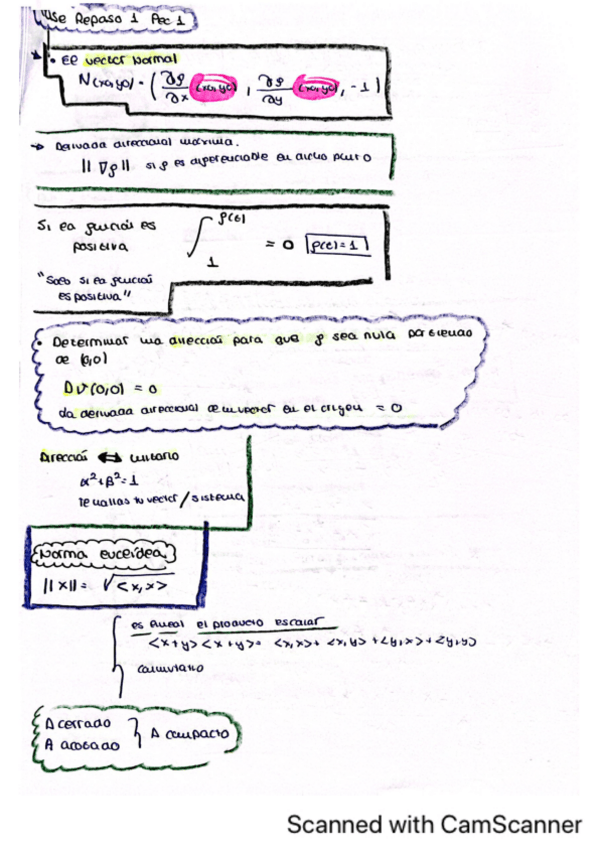 Use Repaso 1 Pec 1
• El vector Normal
N(x0,y0) = ( ∂f/∂x (x0,y0) , ∂f/∂y (x0,y0), -1 )
→ Derivada direccional máxima.
|| ∇f || si f es diferenciable en dicho punto
Si la función es
positiva
∫ f(t) 1 = 0 f(t)=1
"Solo si la función
es positiva"
• Determinar una dirección para que f sea nula partiendo
de (0,0)
Dv(0,0) = 0
da derivada direccional de un vector en el origen = 0
Dirección ↔ unitario
α²+β²=1
te hallas tu vector / sistema
Norma euclídea
||x|| = √<x,x>
es lineal el producto escalar
<x+y> <x+y> = <x,x> + <x,y> + <y,x> + <y,y>
conmutativo
A cerrado
A acotado
} A compacto
Scanned with CamScanner